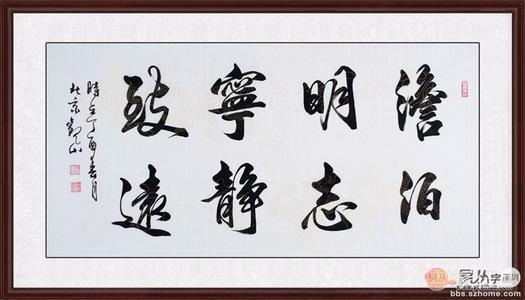 澹泊
明志
寧静
致遠
時在丁酉春月
北京觀山
bbs.szhome.com